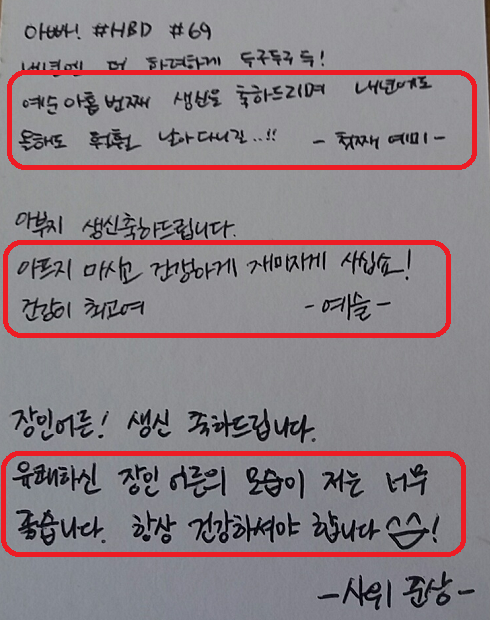 아빠! #HBD #69
내년엔 더 화려하게 두구두구 두!
예순아홉 번째 생신을 축하드리며 내년에도
올해도 훨훨 날아다니길..!! - 첫째 예미 -
아부지 생신축하드립니다.
아프지 마시고 건강하게 재미지게 사십쇼!
건강이 최고여 - 예슬 -
장인어른! 생신 축하드립니다.
유쾌하신 장인 어른의 모습이 저는 너무
좋습니다. 항상 건강하셔야 합니다 ^^!
- 사위 준상 -